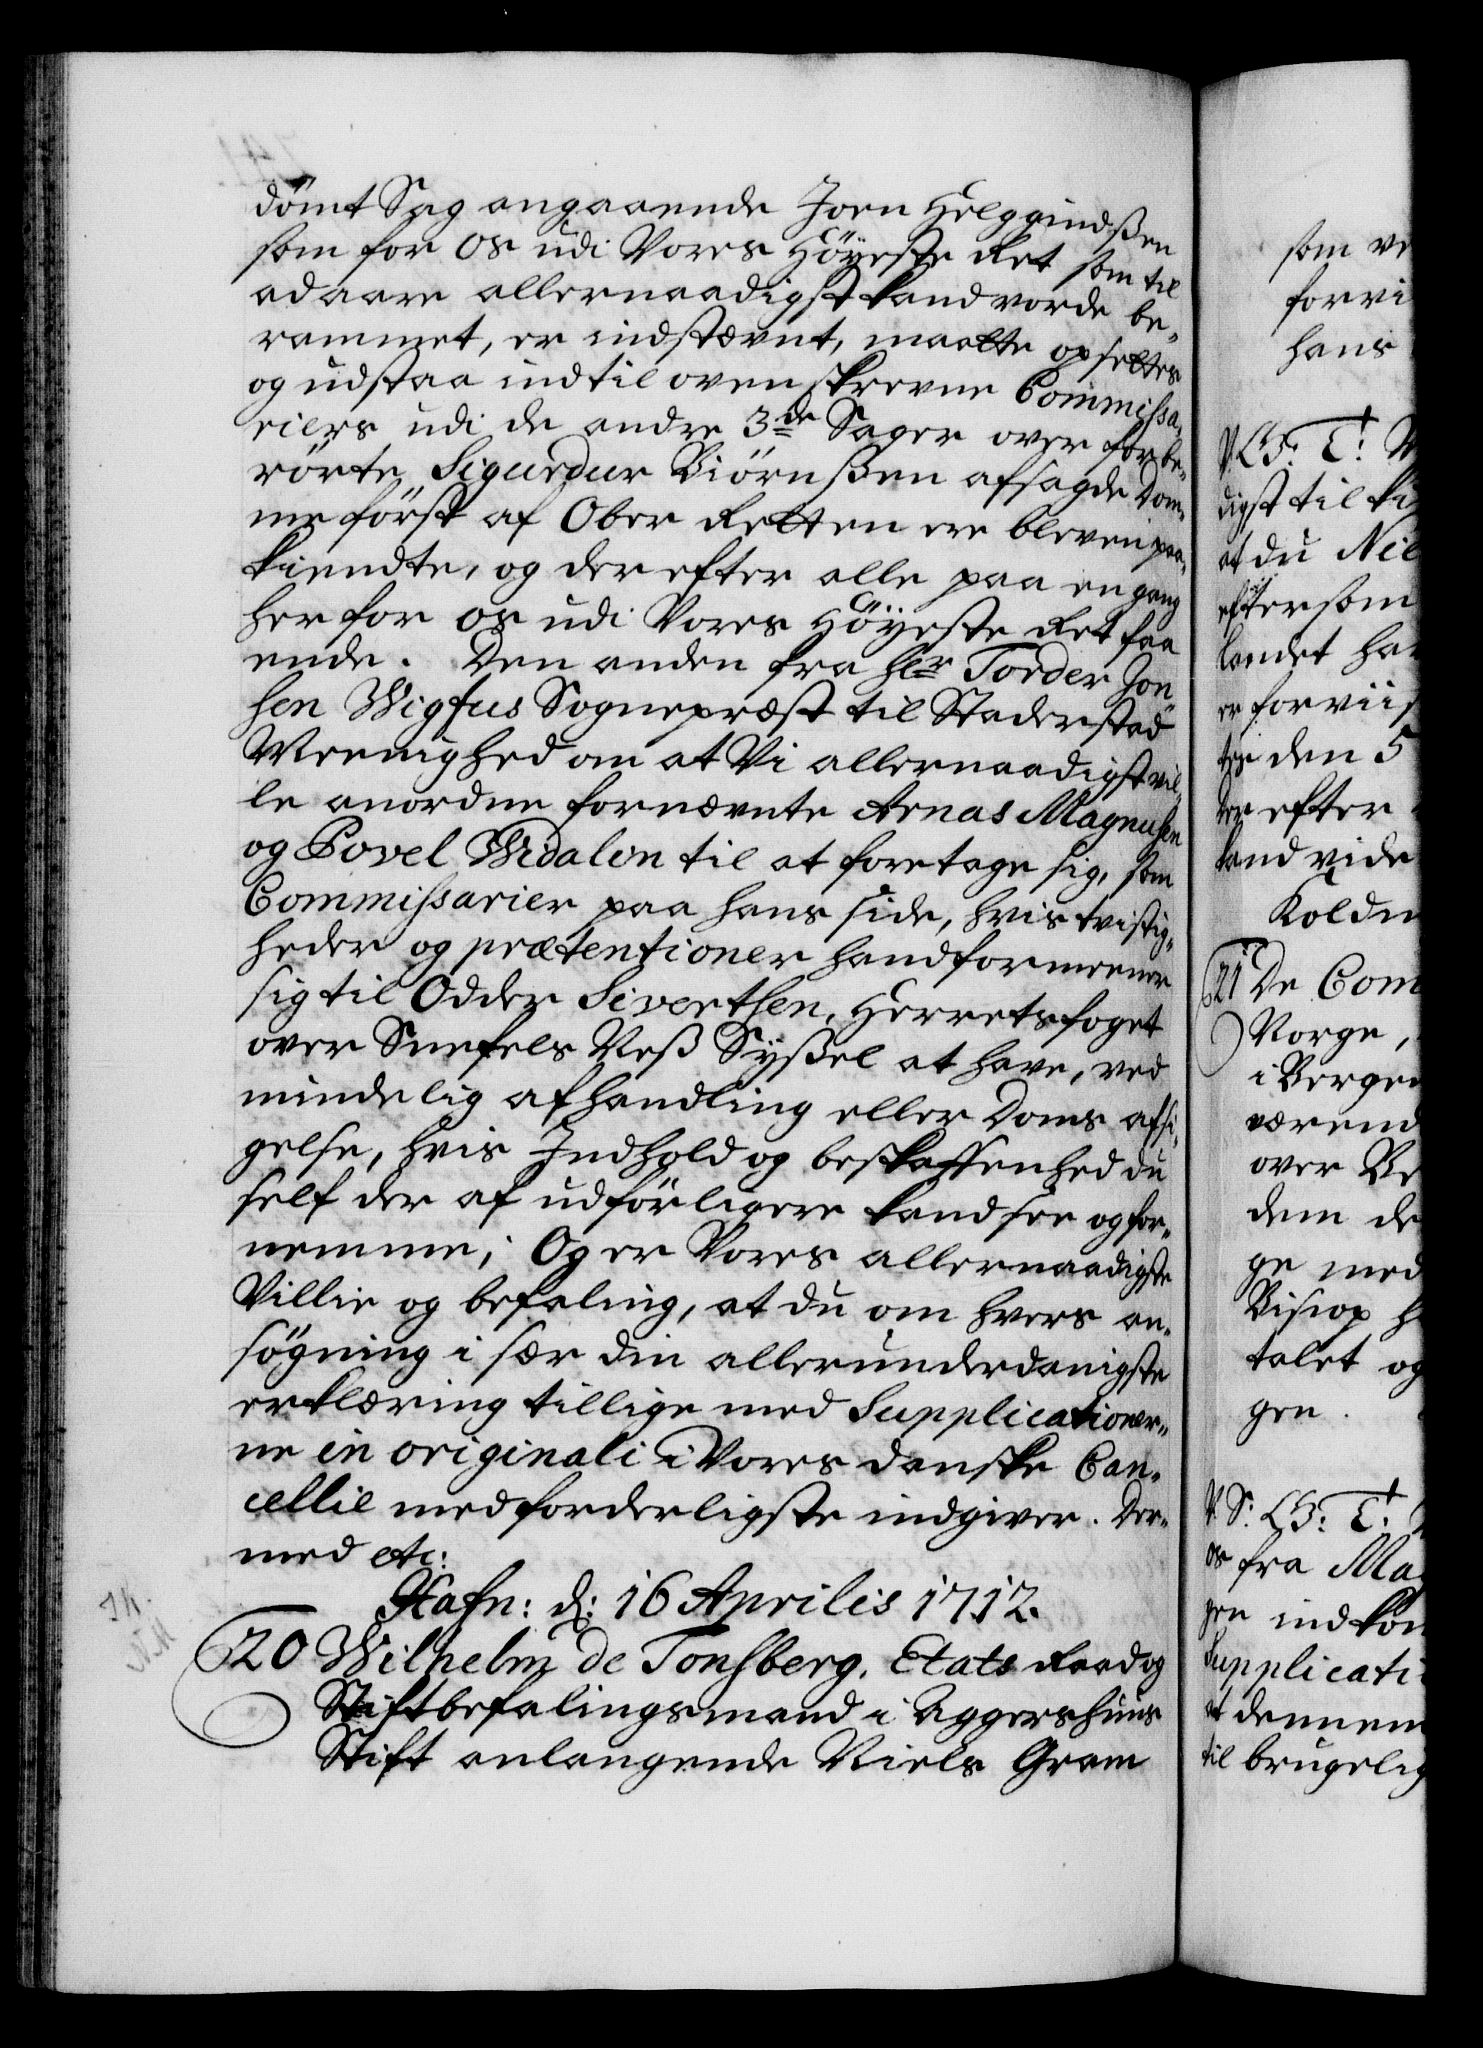 dömt Sag angaaende Joen Helggindsßen
som for os udi Vores Höyeste Ret som til
adaare allernaadigst kand vorde be-
rammet, er indstævnt, maatte opsettes
og udstaa indtil ovenskrevne Commissa-
riers udi de andre 3de Sager over forbe-
rörte Sigurdur Biörnßen afsagde Dom-
me först af Ober Retten ere bleven paa-
kiendte, og der efter alle paa en gang
her for os udi Vores Höyeste Ret faa
ende. Den anden fra Hr Torder Jon
sen Wigfus Sognepræst til Staderstad
Meenighed om at Vi allernaadigst vil-
le anordne fornævnte Arnas Magnusen
og Povel Widalin til at foretage sig, som
Commissarier paa hans side, hvis tvistig-
heder og prætentioner hand formeener
sig til Odder Siverthen, Herretsfoget
over Snefels Neß Sÿßel at have, ved
mindelig afhandling eller Doms afsi-
gelse, hvis Indhold og beskaffenhed du
self der af udförligere kand see og for-
nemme; Og er Vores allernaadigste
Villie og befaling, at du om hvers an-
sögning i sær din allerunderdanigste
erklæring tillige med Supplicationer-
ne in originali i Vores danske Can-
cellie med forderligste indgiver. Der-
med etc:
Hafn: d: 16 Aprilis 1712.
20 Wilhelm de Tonsberg, Etats Raad og
Stiftbefalingsmand i Aggershuus
Stift anlangende Niels Gram
som ve
forvi
hans
digst til ki
at du Niel
eftersom
landet har
er forviis
den 5
der efter
kand vide
Koldn
21 De Com
Norge,
i Bergen
værend
over Be
dem de
ge med
Bisiop H
talet og
gen.
os fra Ma
gen indkom
Supplicati
at dennem
til brugelig